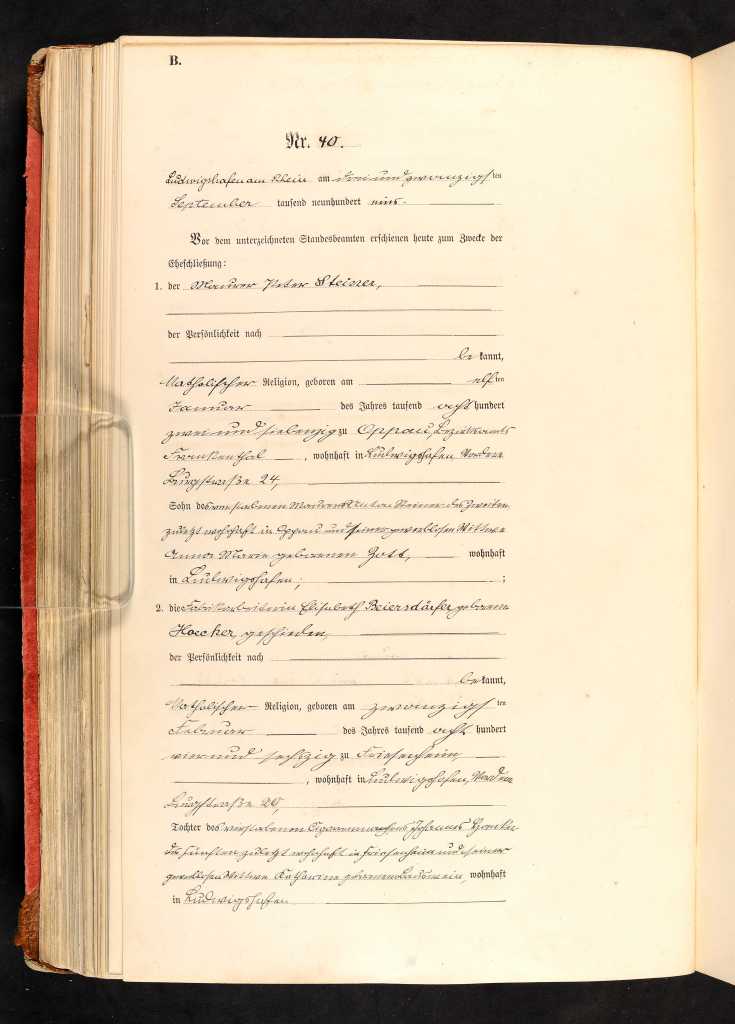 B.
Nr. 40.
Ludwigshafen am Rhein am drei und zwanzigsten
September tausend neunhundert eins.
Vor dem unterzeichneten Standesbeamten erschienen heute zum Zwecke der
Eheschließung:
1. der Maurer Peter Steiner,
der Persönlichkeit nach
be kannt,
katholischer Religion, geboren am elften
Januar des Jahres tausend acht hundert
zwei und siebenzig zu Oppau, Bezirksamts
Frankenthal, wohnhaft in Ludwigshafen, Vordere
Burgstraße 24,
Sohn des verstorbenen Maurers Anton Steiner des Zweiten
zuletzt wohnhaft in Oppau und seiner gewerblosen Wittwe
Anna Marie geborenen Zott, wohnhaft
in Ludwigshafen; ;
2. die Fabrikarbeiterin Elisabeth Beiersdörfer geborene
Hoecker geschieden,
der Persönlichkeit nach
be kannt,
katholischer Religion, geboren am zwanzigsten
Februar des Jahres tausend acht hundert
vier und sechszig zu Friesenheim,
, wohnhaft in Ludwigshafen, Vordere
Burgstraße 20,
Tochter des verstorbenen Johannes
des fünften zuletzt wohnhaft in Friesenheim und seiner
gewerblosen Wittwe Katharine geborenen, wohnhaft
in Ludwigshafen